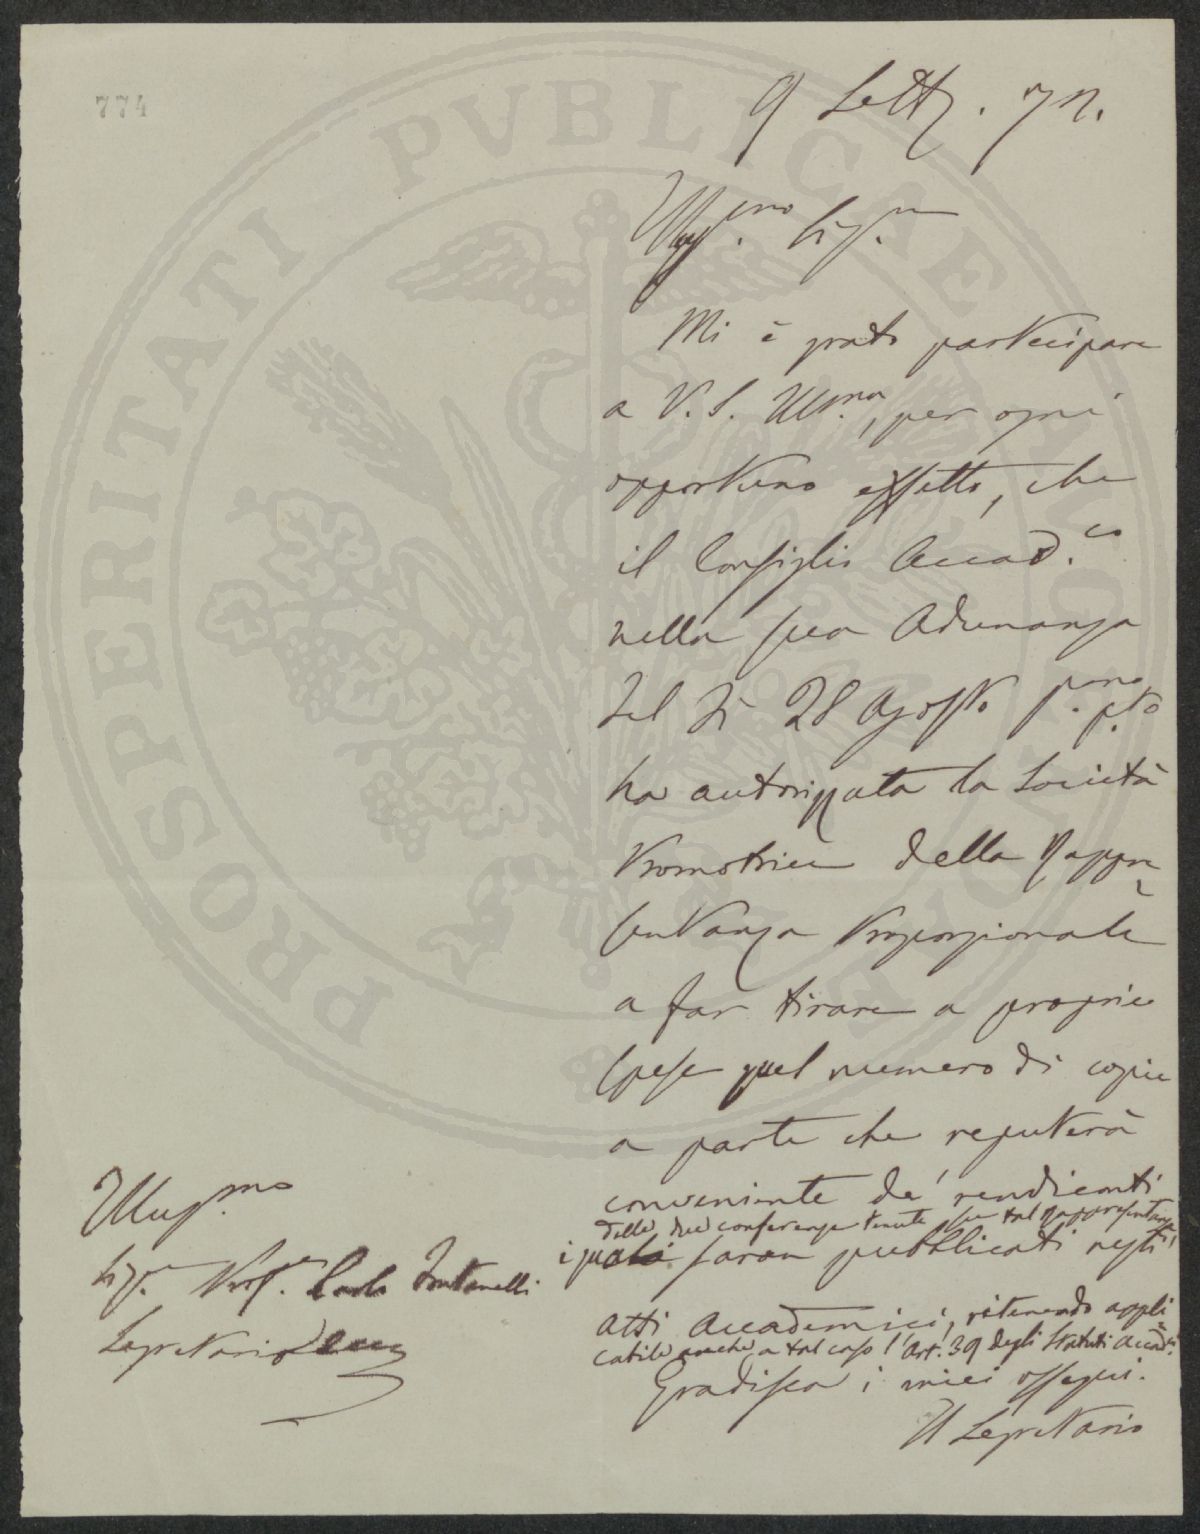 774
9 Sett. 72.
Illus.mo Sig.re
Mi è grato partecipare
a V. S. Ill.ma, per ogni
opportuno effetto, che
il Consiglio Accad.co
nella sua Adunanza
del dì 28 Agosto p.mo p.to
ha autorizzata la Società
Promotrice della Rappre
sentanza Proporzionale
a far tirare a proprie
spese quel numero di copie
a parte che reputerà
conveniente de' rendiconti
delle due conferenze tenute su tal Rappresentanza,
i quali saran pubblicati negli
Atti Accademici, ritenendo appli
cabile anche a tal caso l'Art. 39 degli Statuti Accad.ci
Gradisca i miei ossequi.
Il Segretario
Illus.mo
Sig.r Prof.e Carlo Fontanelli
Segretario
PROSPERITATI PVBLICAE AVGENDAE